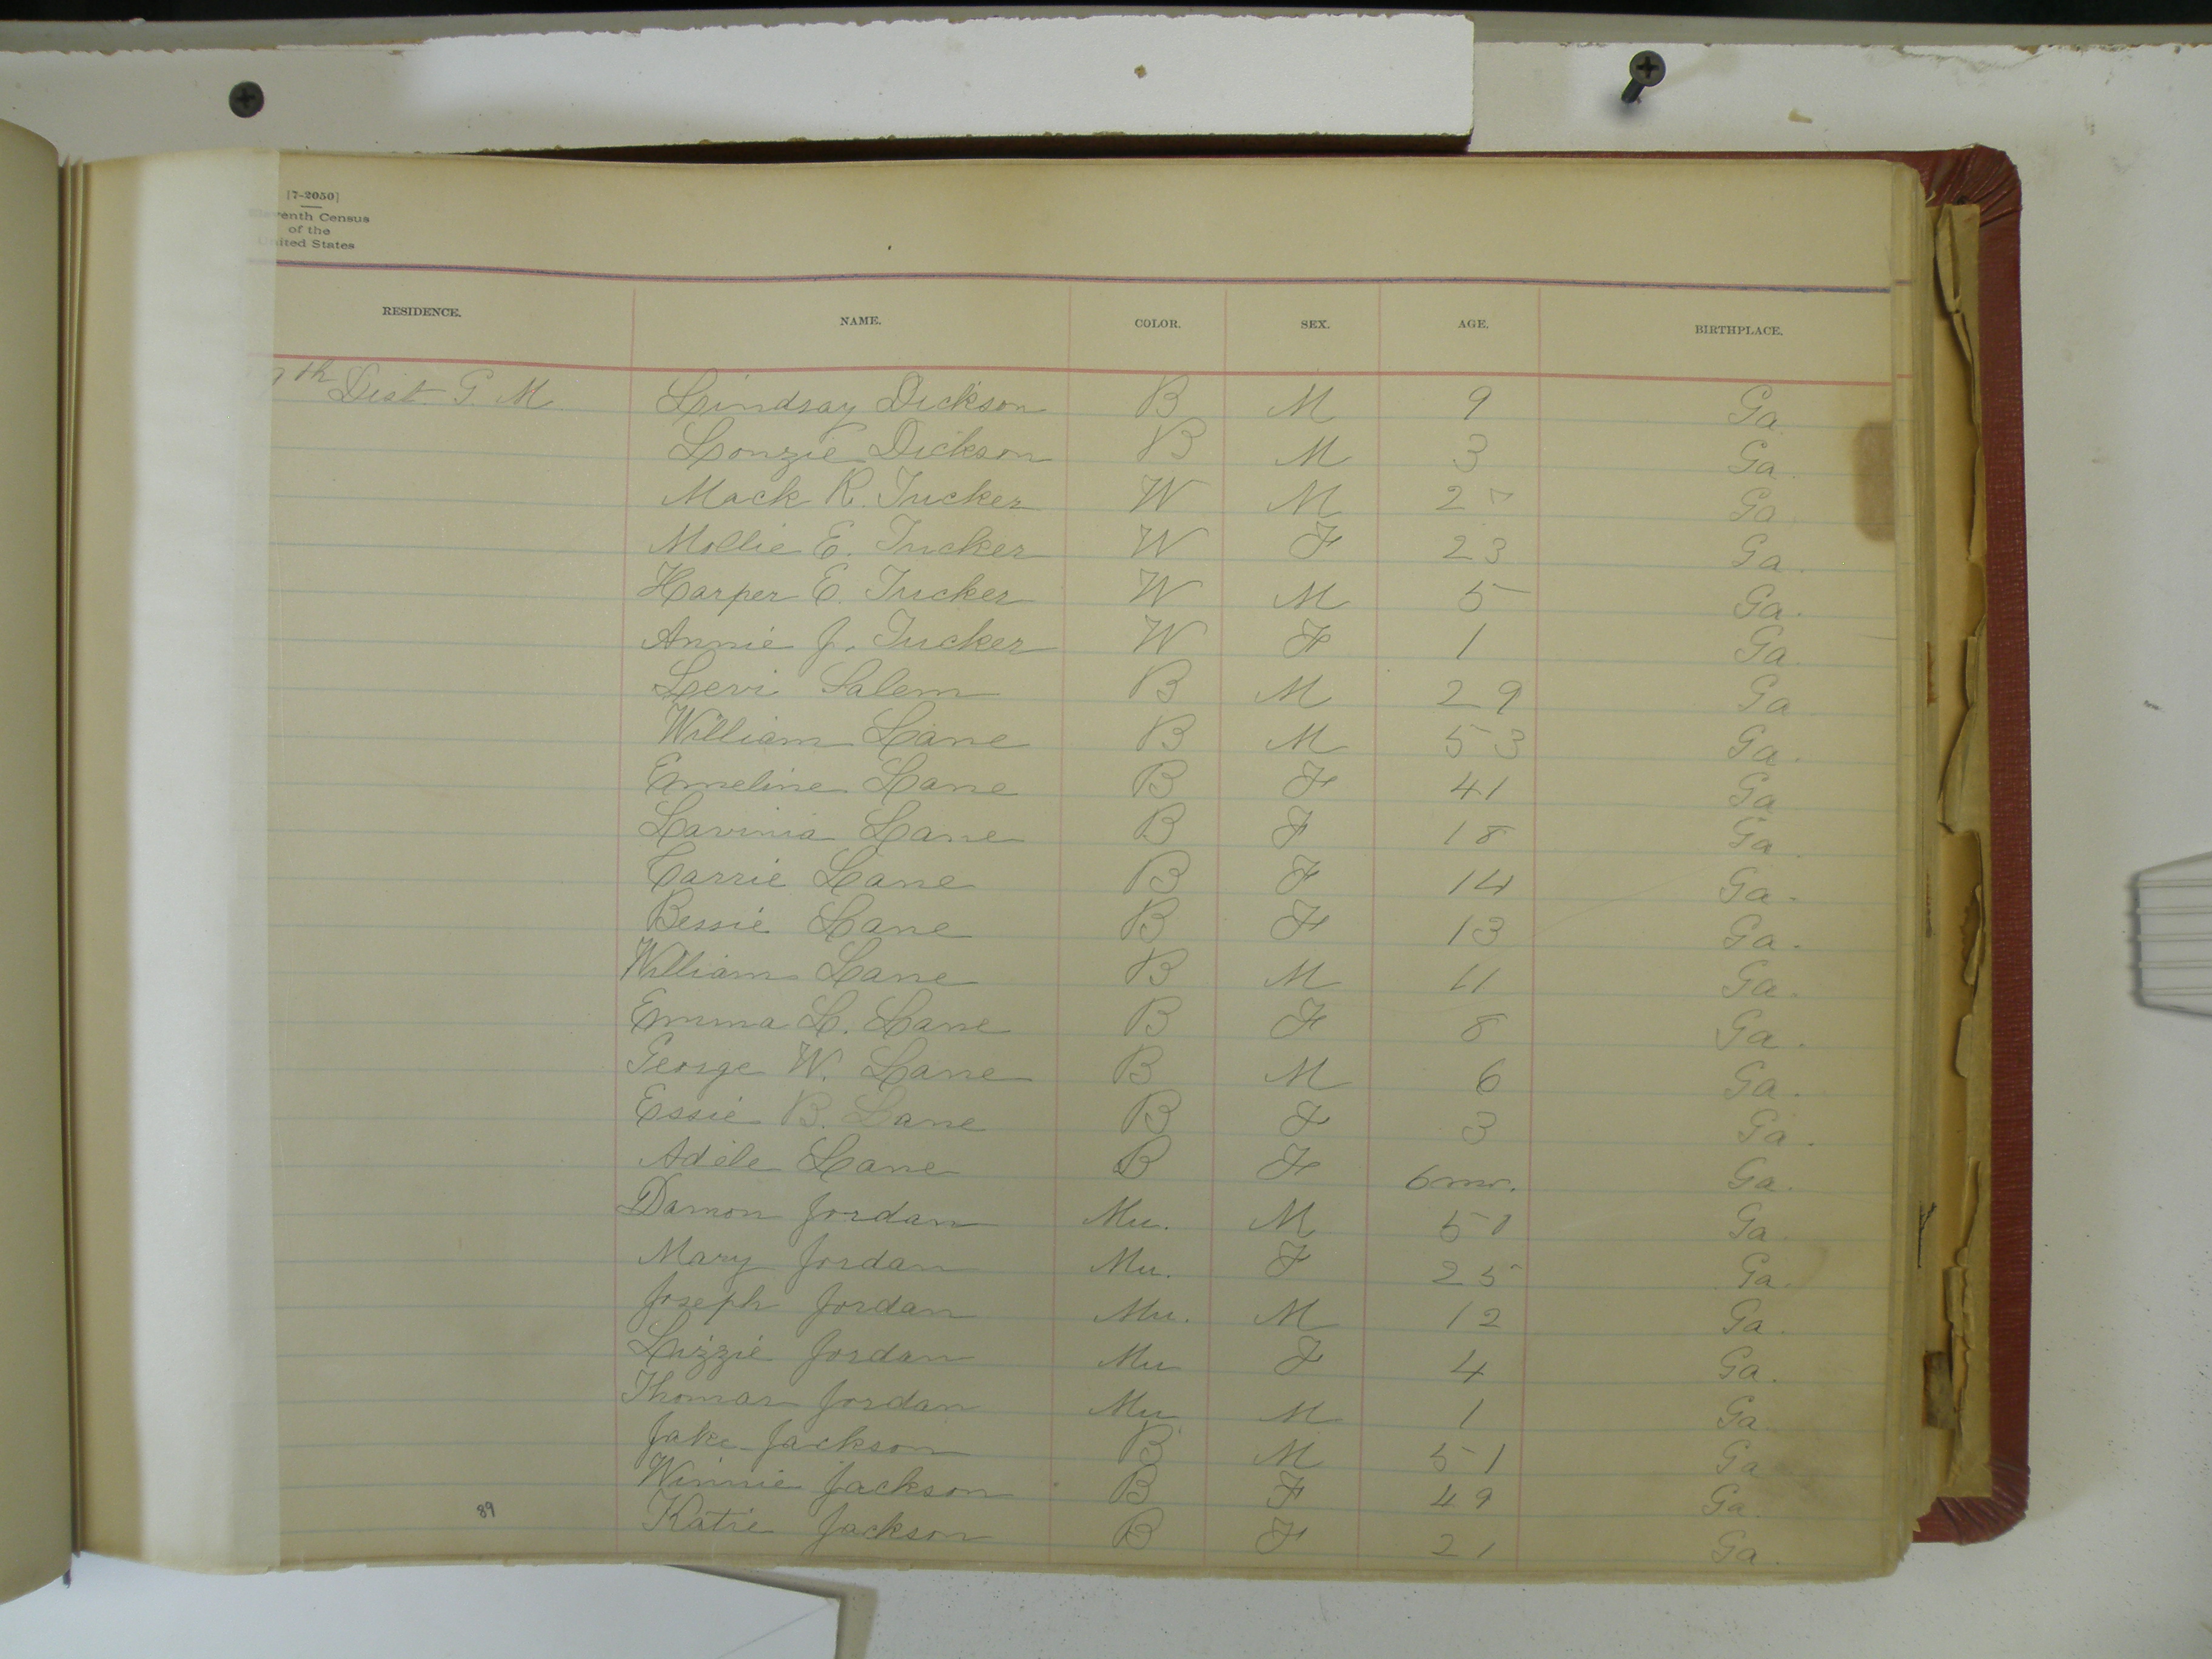 [7-2050]
Eleventh Census
of the
United States
RESIDENCE. NAME. COLOR. SEX. AGE. BIRTHPLACE.
7th Dist. G. M. Lindsay Dickson B M 9 Ga.
Lonzie Dickson B M 3 Ga.
Mack R. Tucker W M 27 Ga.
Mollie E. Tucker W F 23 Ga.
Harper E. Tucker W M 5 Ga.
Annie J. Tucker W F 1 Ga.
Levi Salem B M 29 Ga
William Lane B M 53 Ga.
Emeline Lane B F 41 Ga
Lavinia Lane B F 18 Ga.
Carrie Lane B F 14 Ga.
Bessie Lane B F 13 Ga.
William Lane B M 11 Ga.
Emma L. Lane B F 8 Ga.
George W. Lane B M 6 Ga.
Essie B. Lane B F 3 Ga.
Adele Lane B F 6 mo. Ga.
Damon Jordan Mu. M Ga.
Mary Jordan Mu. F 25 Ga.
Joseph Jordan Mu. M 12 Ga.
Lizzie Jordan Mu F 4 Ga.
Thomas Jordan Mu M 1 Ga.
Jake Jackson B M 51 Ga
Winnie Jackson B F 49 Ga.
Katie Jackson B F 21 Ga.
89